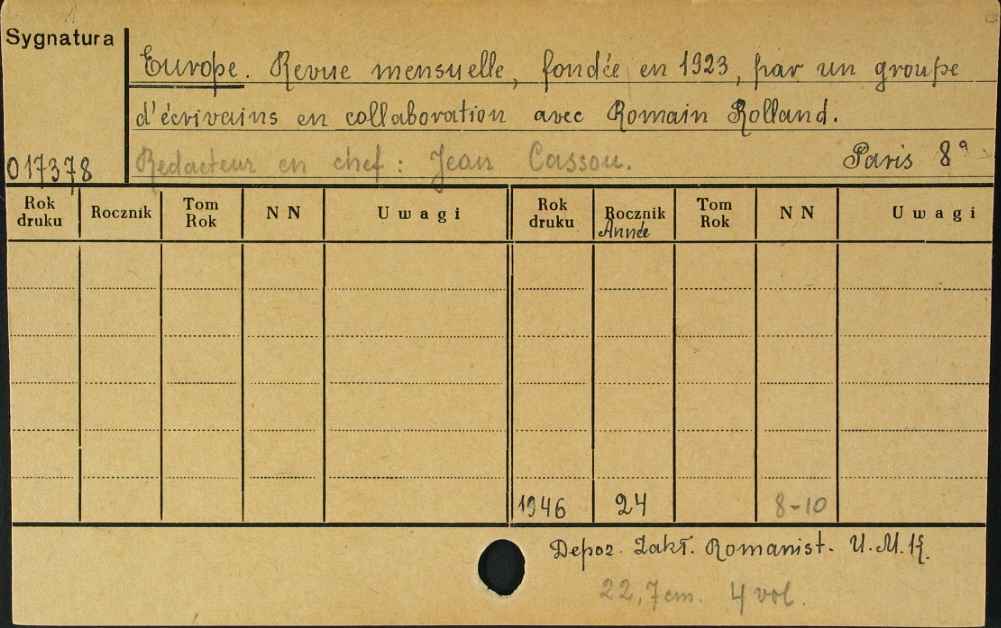 Sygnatura
Europe. Revue mensuelle, fondée en 1923, par un groupe
d'écrivains en collaboration avec Romain Rolland.
017378 Redacteur en chef: Jean Cassou. Paris 8°
Rok druku Rocznik Tom Rok NN Uwagi Rok druku Rocznik Année Tom Rok NN Uwagi
1946 24 8-10
Depoz. Zakł. Romanist. U.M.K.
22,7cm. 4 vol.